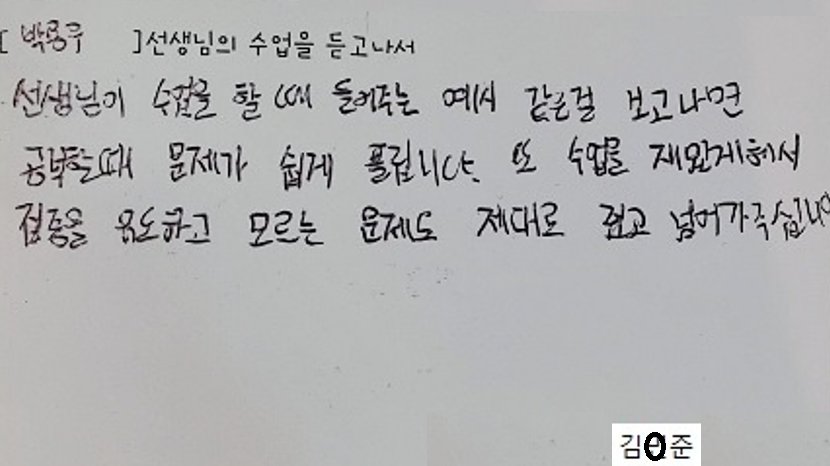 [ 박용우 ]선생님의 수업을 듣고나서
선생님이 수업을 할 때 들어주는 예시 같은걸 보고나면
공부할때 문제가 쉽게 풀립니다. 또 수업을 재있게해서
집중을 유도하고 모르는 문제도 제대로 짚고 넘어가주십니다
김 준